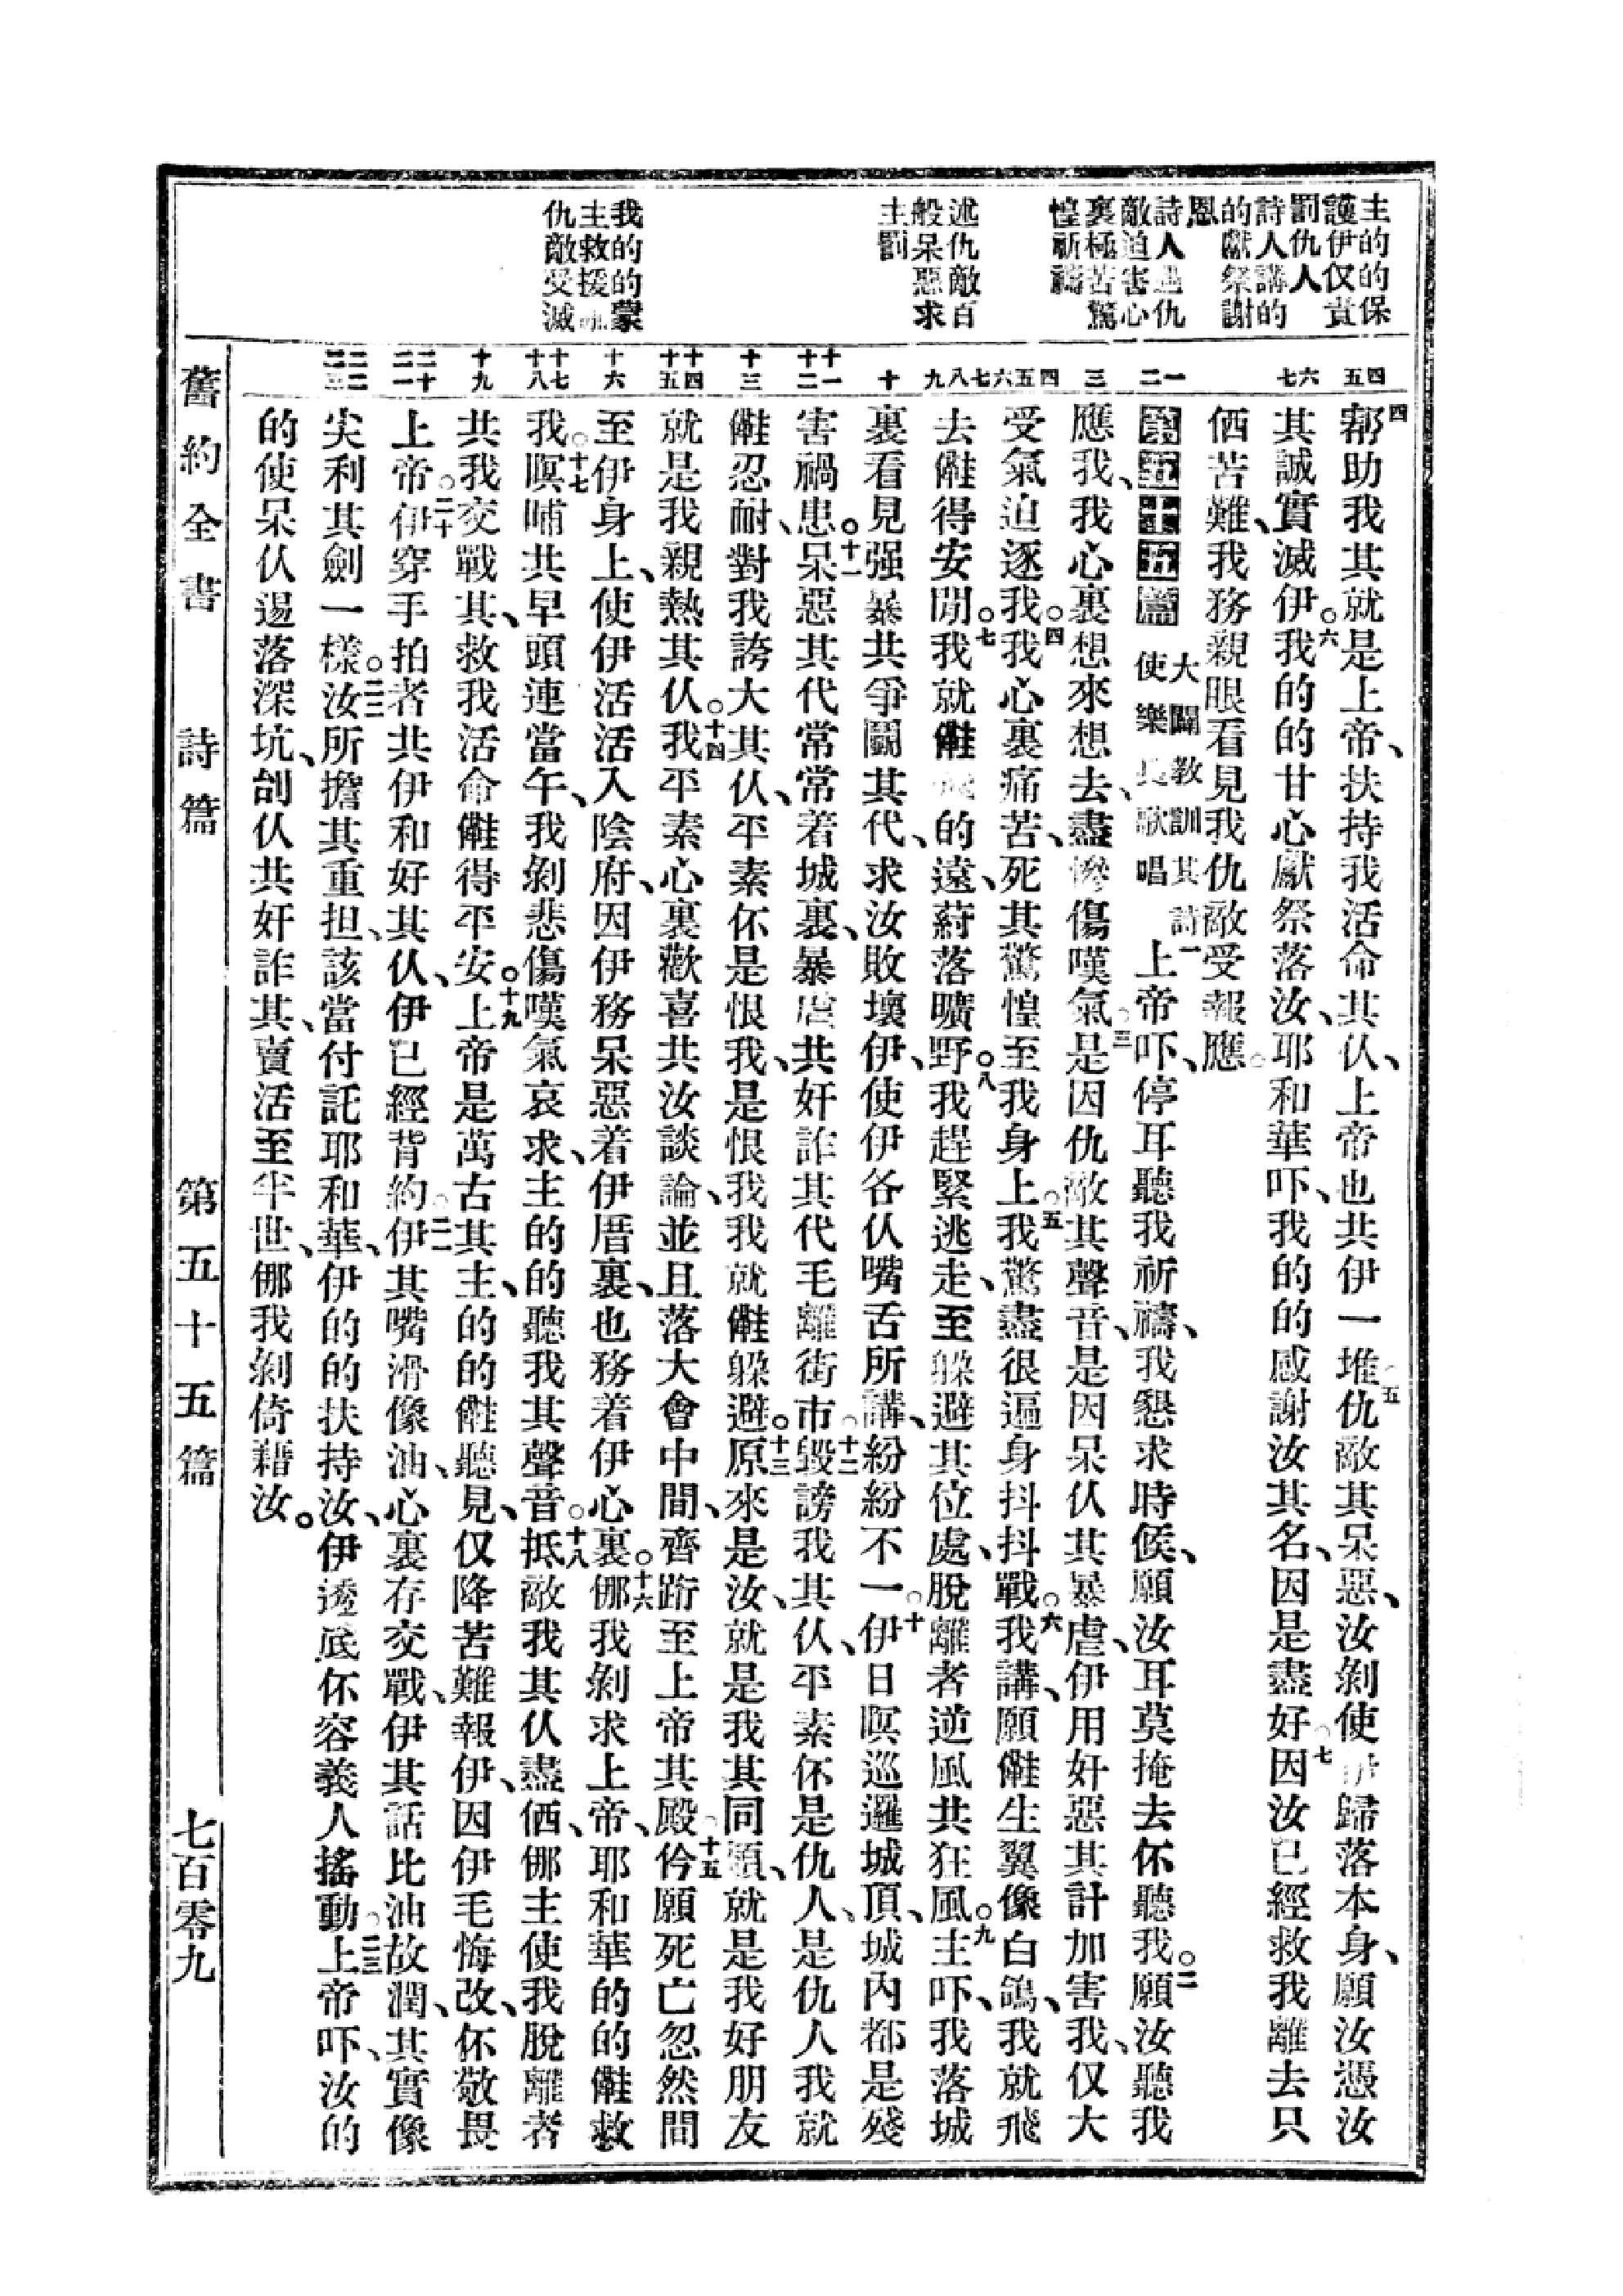 主的的保
護伊仅責
罰仇人
詩人講的
的獻祭謝
恩
詩人遇仇
敵迫害心
裏極苦驚
惶祈禱
述仇敵百
般呆惡求
主罰
我的的蒙
主救援
仇敵受滅
四五
六七
一二
三
四五六
七八九
十
十一十二
十三
十四十五
十六
十七十八
十九
二十二一
二二二三
四幫助我其就是上帝、扶持我活命其、仈上帝也共伊一堆五仇敵其呆惡、汝剝使伊歸落本身、願汝憑汝
其誠實、滅伊。六我的的甘心獻祭落汝、耶和華吓、我的的感謝汝其名、因是盡好七因汝已經救我離去只
𠇖苦難、我務親眼看見我仇敵受報應。
第五十五篇 大闢教訓其詩使樂長歌唱 一上帝吓、停耳聽我祈禱、我懇求時候、願汝耳莫掩去伓聽我。二願汝聽我
應我、我心裏想來想去、盡慘傷嘆氣。三是因仇敵其聲音、是因呆仈其暴虐、伊用奸惡其計加害我、仅大
受氣迫逐我。四我心裏痛苦、死其驚惶至我身上。五我驚盡很遍身抖抖戰。六我講、願㑚生翼像白鴿、我就飛
去㑚得安閒。七我就㑚飛的遠、葯落曠野。八我趕緊逃走、至躲避其位處、脫離者逆風共狂風。九主吓、我落城
裏看見强暴共爭鬬其代、求汝敗壞伊、使伊各仈嘴舌所講、紛紛不一。十伊日暝巡邏城頂、城內都是殘
害禍患。十一呆惡其代常常着城裏、暴虐共奸詐其代毛離街市。十二毀謗我其仈、平素伓是仇人、是仇人我就
㑚忍耐、對我誇大其仈、平素伓是恨我、是恨我我就㑚躲避。十三原來是汝、就是我其同輩、就是我好朋友
就是我親熱其仈。十四我平素心裏歡喜共汝談論、並且落大會中間、齊跡至上帝其殿。十五伱願死亡忽然間
至伊身上、使伊活活入陰府、因伊務呆惡着伊厝裏、也務着伊心裏。十六㑚我剝求上帝、耶和華的的㑚救
我。十七暝晡共早頭連當午、我剝悲傷嘆氣哀求、主的的聽我其聲音。十八抵敵我其仈盡𠇖、㑚主使我脫離者
共我交戰其、救我活命㑚得平安。十九上帝是萬古其主、的的㑚聽見、仅降苦難報伊、因伊毛悔改、伓敬畏
上帝。二十伊穿手拍者共伊和好其仈、伊已經背約。二一伊其嘴滑像油、心裏存交戰、伊其話比油故潤、其實像
尖利其劍一樣。二二汝所擔其重担、該當付託耶和華、伊的的扶持汝、伊透底伓容義人搖動。二三上帝吓、汝的
的使呆仈逿落深坑、刣仈共奸詐其、賣活至半世、㑚我剝倚藉汝。
舊約全書 詩篇 第五十五篇 七百零九